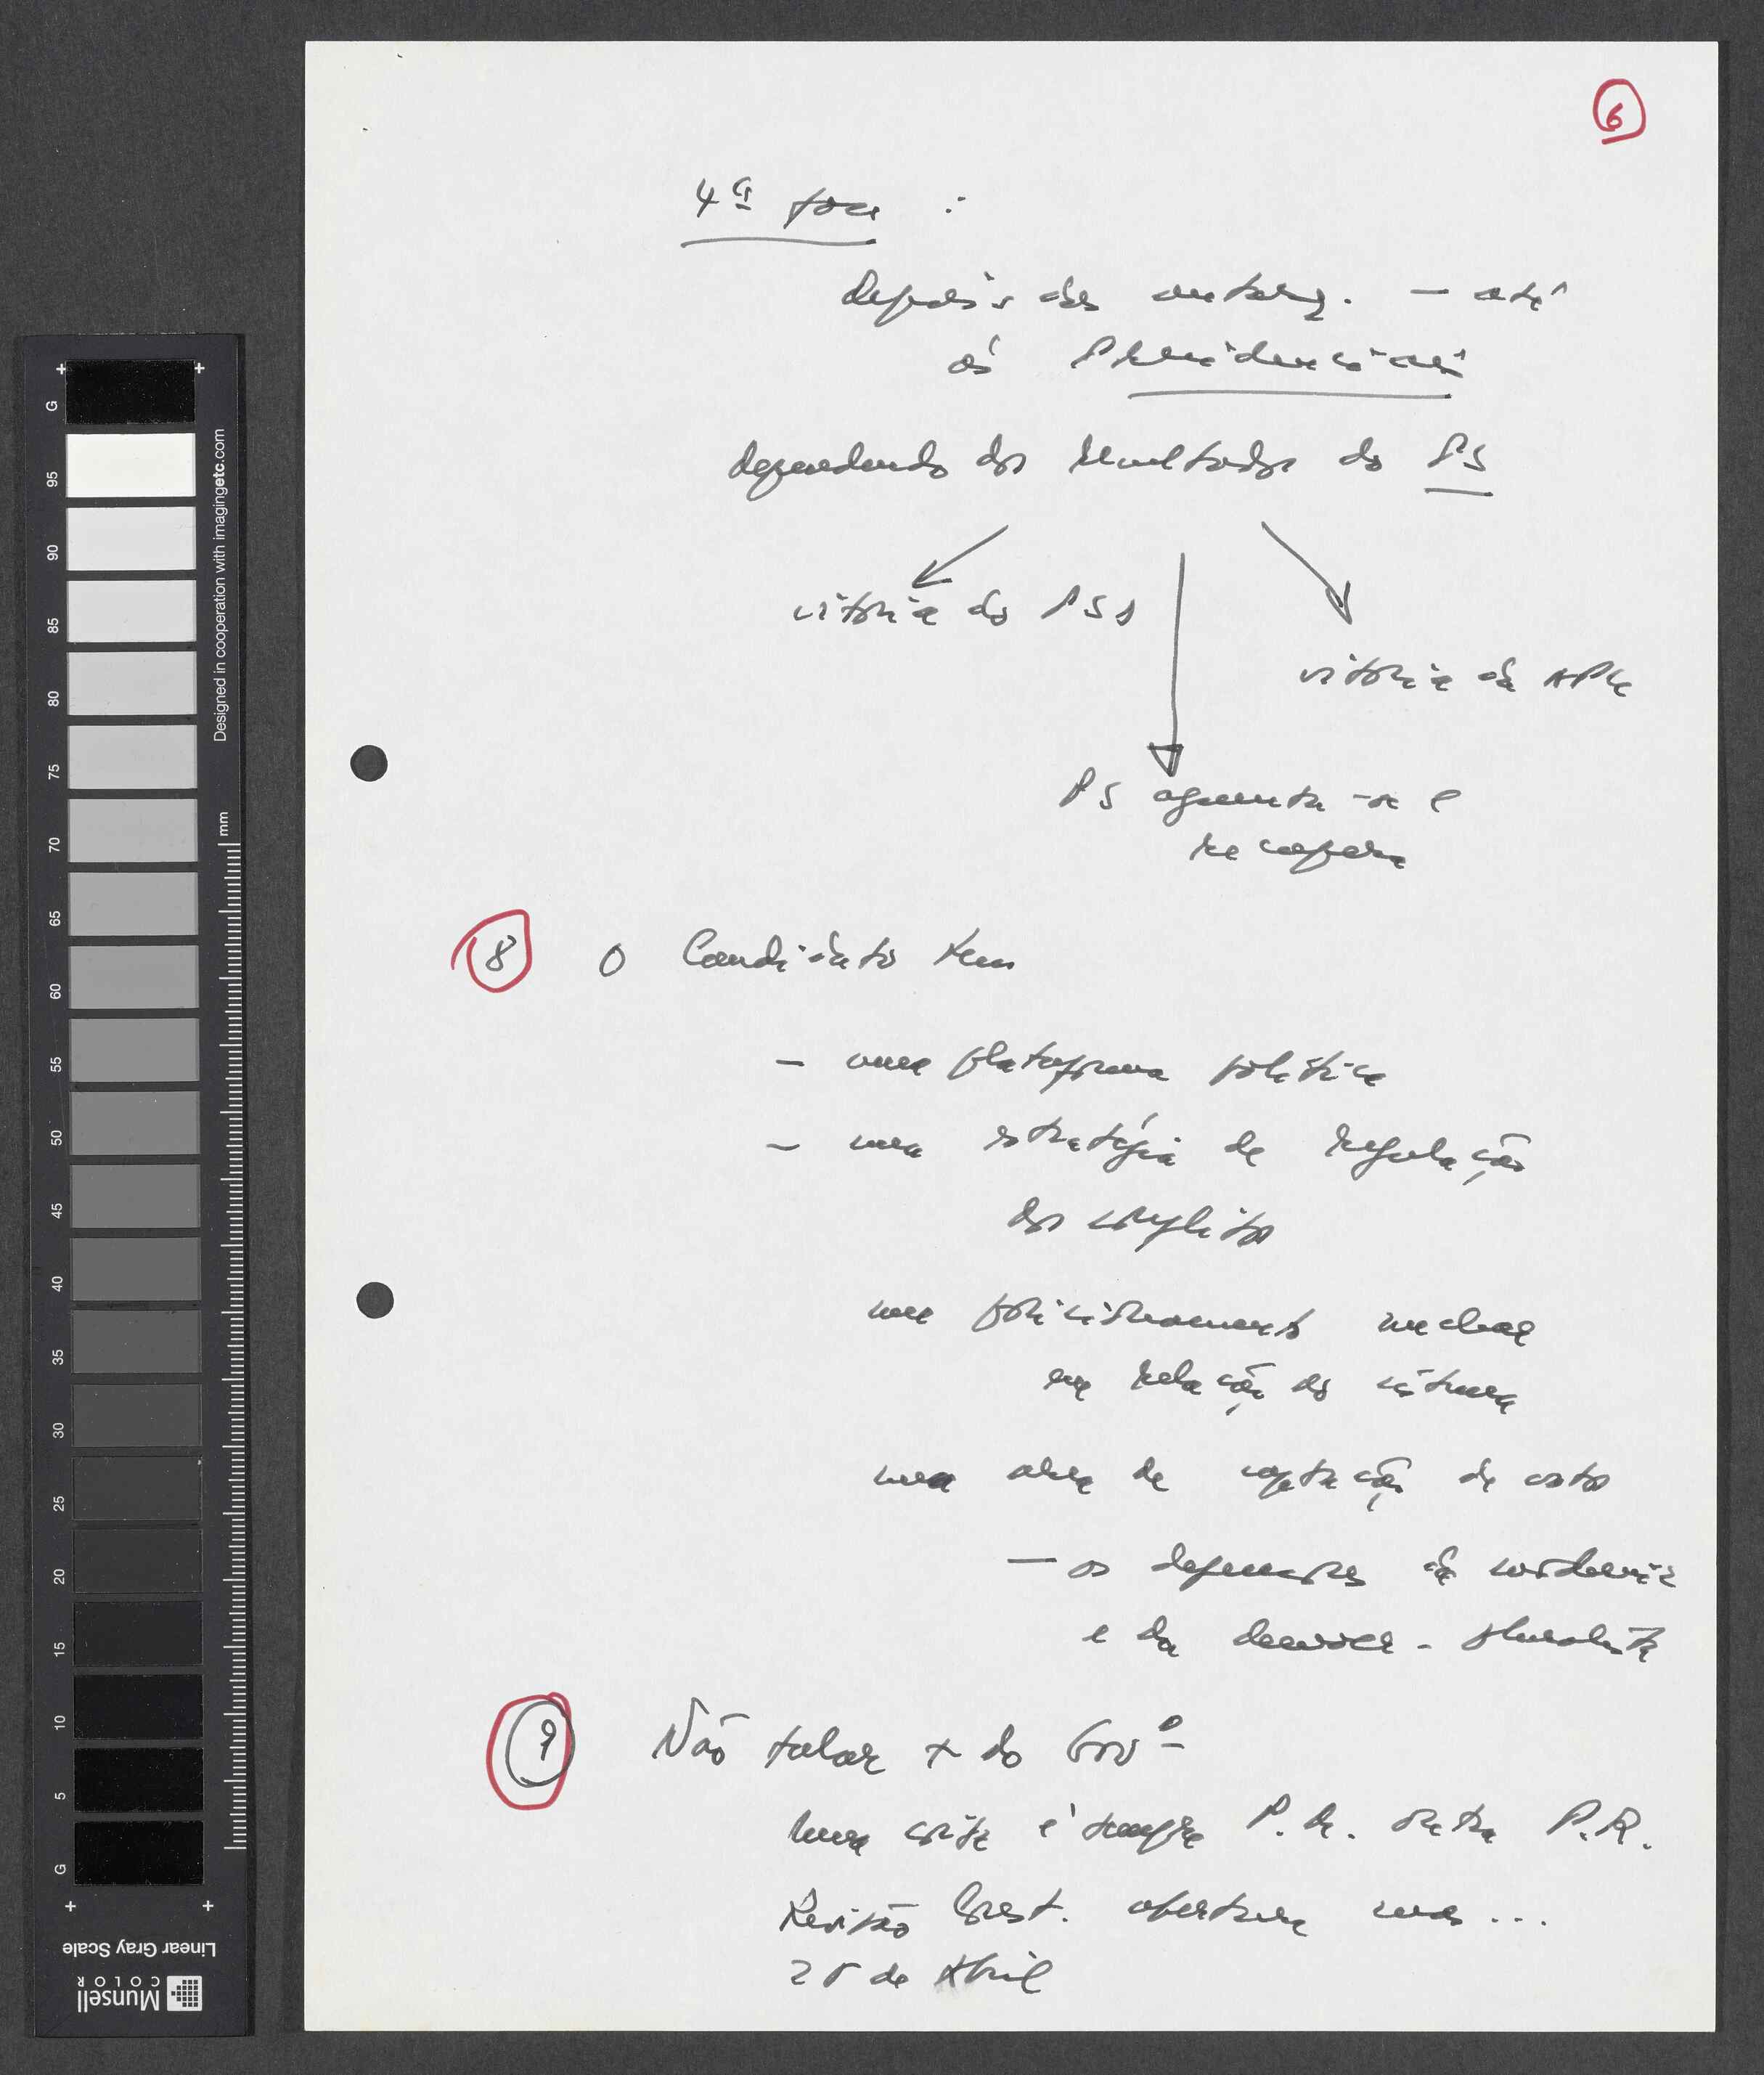 6
4ª fase :
Depois das autárq. — até
às Presidenciais
dependendo dos resultados do PS
vitória do PSD
vitória da APU
PS aguenta-se e
recupera
8 O Candidato tem
— uma plataforma política
— uma estratégia de regulação
dos conflitos
um posicionamento nuclear
em relação ao sistema
uma área de captação de votos
— os defensores da
e da democr. pluralista
9 Não falar + do Govº
uma crise é sempre P.R. P.R.
Revisão Const. abertura mas ...
25 de Abril
G
95
90
85
80
75
70
65
60
55
50
45
40
35
30
25
20
15
10
5
G
mm
Designed in cooperation with imagingetc.com
Linear Gray Scale
Munsell
COLOR